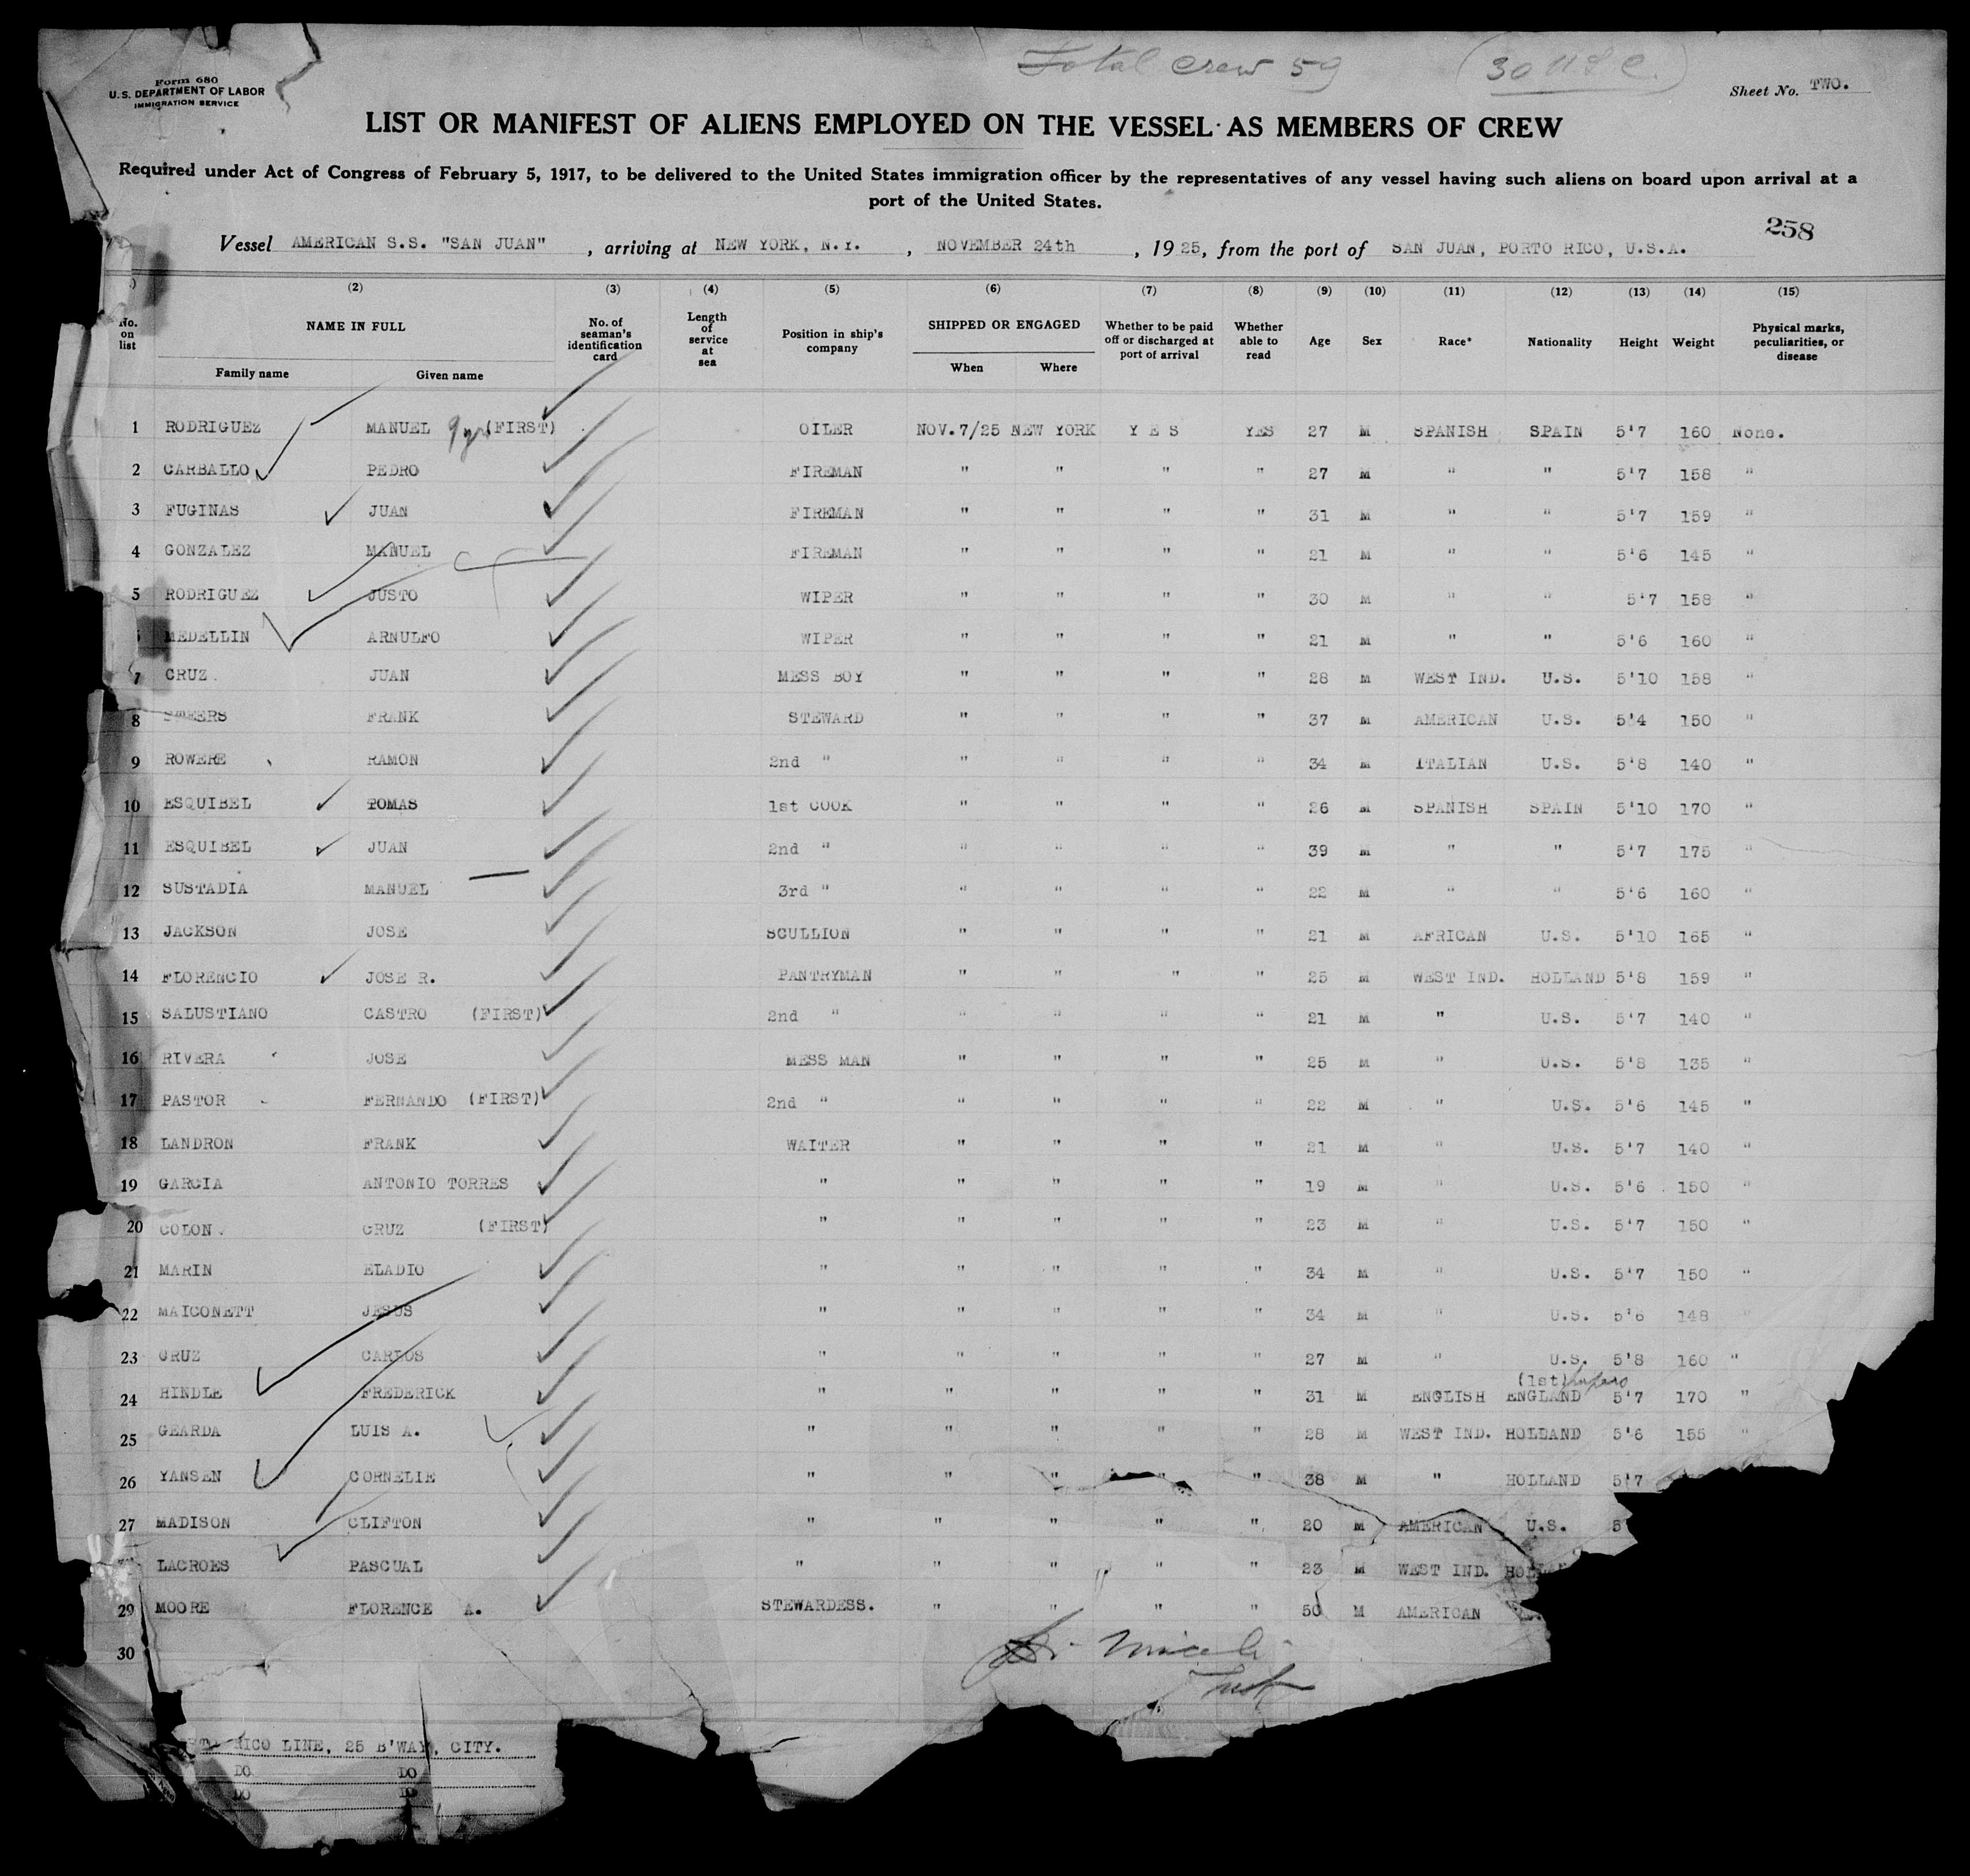 Total crew 59 (30 U S C.)
Form 680
U.S. DEPARTMENT OF LABOR
IMMIGRATION SERVICE
Sheet No. TWO.
LIST OR MANIFEST OF ALIENS EMPLOYED ON THE VESSEL AS MEMBERS OF CREW
Required under Act of Congress of February 5, 1917, to be delivered to the United States immigration officer by the representatives of any vessel having such aliens on board upon arrival at a
port of the United States.
258
Vessel AMERICAN S.S. "SAN JUAN" , arriving at NEW YORK, N.Y. , NOVEMBER 24th , 1925, from the port of SAN JUAN, PORTO RICO, U.S.A.
(2) (3) (4) (5) (6) (7) (8) (9) (10) (11) (12) (13) (14) (15)
No. on list NAME IN FULL Family name Given name No. of seaman's identification card Length of service at sea Position in ship's company SHIPPED OR ENGAGED When Where Whether to be paid off or discharged at port of arrival Whether able to read Age Sex Race* Nationality Height Weight Physical marks, peculiarities, or disease
1 RODRIGUEZ MANUEL 9 yrs (FIRST) OILER NOV.7/25 NEW YORK Y E S YES 27 M SPANISH SPAIN 5'7 160 None.
2 CARBALLO PEDRO FIREMAN " " " " 27 M " " 5'7 158 "
3 FUGINAS JUAN FIREMAN " " " " 31 M " " 5'7 159 "
4 GONZALEZ MANUEL FIREMAN " " " " 21 M " " 5'6 145 "
5 RODRIGUEZ JUSTO WIPER " " " " 30 M " " 5'7 158 "
MEDELLIN ARNULFO WIPER " " " " 21 M " " 5'6 160 "
7 CRUZ JUAN MESS BOY " " " " 28 M WEST IND. U.S. 5'10 158 "
8 FRANK STEWARD " " " " 37 M AMERICAN U.S. 5'4 150 "
9 ROWERE RAMON 2nd " " " " " 34 M ITALIAN U.S. 5'8 140 "
10 ESQUIBEL TOMAS 1st COOK " " " " 26 M SPANISH SPAIN 5'10 170 "
11 ESQUIBEL JUAN 2nd " " " " " 39 M " " 5'7 175 "
12 SUSTADIA MANUEL 3rd " " " " " 22 M " " 5'6 160 "
13 JACKSON JOSE SCULLION " " " " 21 M AFRICAN U.S. 5'10 165 "
14 FLORENCIO JOSE R. PANTRYMAN " " " " 25 M WEST IND. HOLLAND 5'8 159 "
15 SALUSTIANO CASTRO (FIRST) 2nd " " " " " 21 M " U.S. 5'7 140 "
16 RIVERA JOSE MESS MAN " " " " 25 M " U.S. 5'8 135 "
17 PASTOR FERNANDO (FIRST) 2nd " " " " " 22 M " U.S. 5'6 145 "
18 LANDRON FRANK WAITER " " " " 21 M " U.S. 5'7 140 "
19 GARCIA ANTONIO TORRES " " " " " 19 M " U.S. 5'6 150 "
20 COLON CRUZ (FIRST) " " " " " 23 M " U.S. 5'7 150 "
21 MARIN ELADIO " " " " " 34 M " U.S. 5'7 150 "
22 MAICONETT JESUS " " " " " 34 M " U.S. 5'6 148 "
23 CRUZ CARLOS " " " " " 27 M " U.S. 5'8 160 "
(1st) papers
24 HINDLE FREDERICK " " " " " 31 M ENGLISH ENGLAND 5'7 170 "
25 GEARDA LUIS A. " " " " " 28 M WEST IND. HOLLAND 5'6 155 "
26 YANSEN CORNELIE " " " " " 38 M " HOLLAND 5'7
27 MADISON CLIFTON " " " " " 20 M AMERICAN U.S. 5'
LACROES PASCUAL " " " " " 23 M WEST IND.
29 MOORE FLORENCE A. STEWARDESS. " " " " 50 M AMERICAN
30
RICO LINE, 25 B'WAY, CITY.
DO DO
DO DO